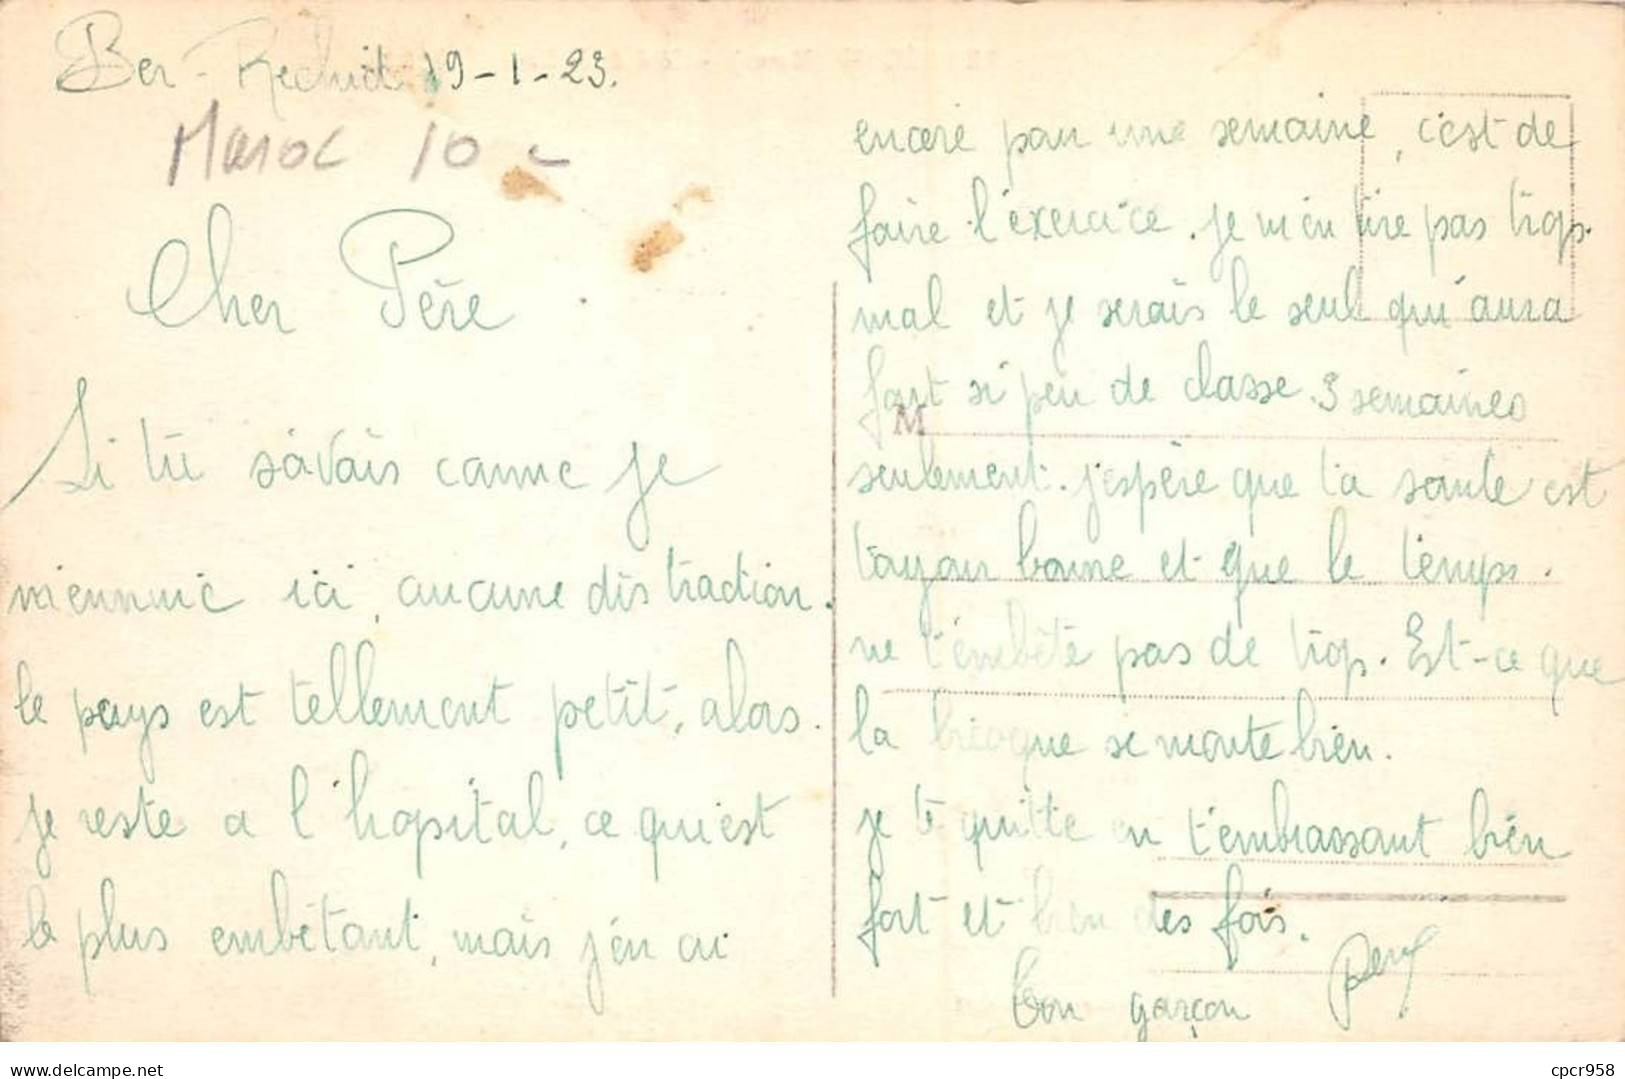 Ber-Rechid 19-1-23.
Maroc 10 -
Cher Père
Si tu savais comme je
m'ennuie ici, aucune distraction.
le pays est tellement petit, alors.
je reste a l'hopital, ce qui est
le plus embêtant, mais j'en ai
encore pour une semaine, c'est de
faire l'exercice. je m'en tire pas trop.
mal et je serais le seul qui aura
fait si peu de classe. 3 semaines
M
seulement. j'espère que ta sante est
toujour bonne et que le temps.
ne t'embête pas de trop. Est-ce que
la bicoque se monte bien.
je te quitte en t'embrassant bien
fort et bien des fois.
ton garçon
www.delcampe.net
cpcr958